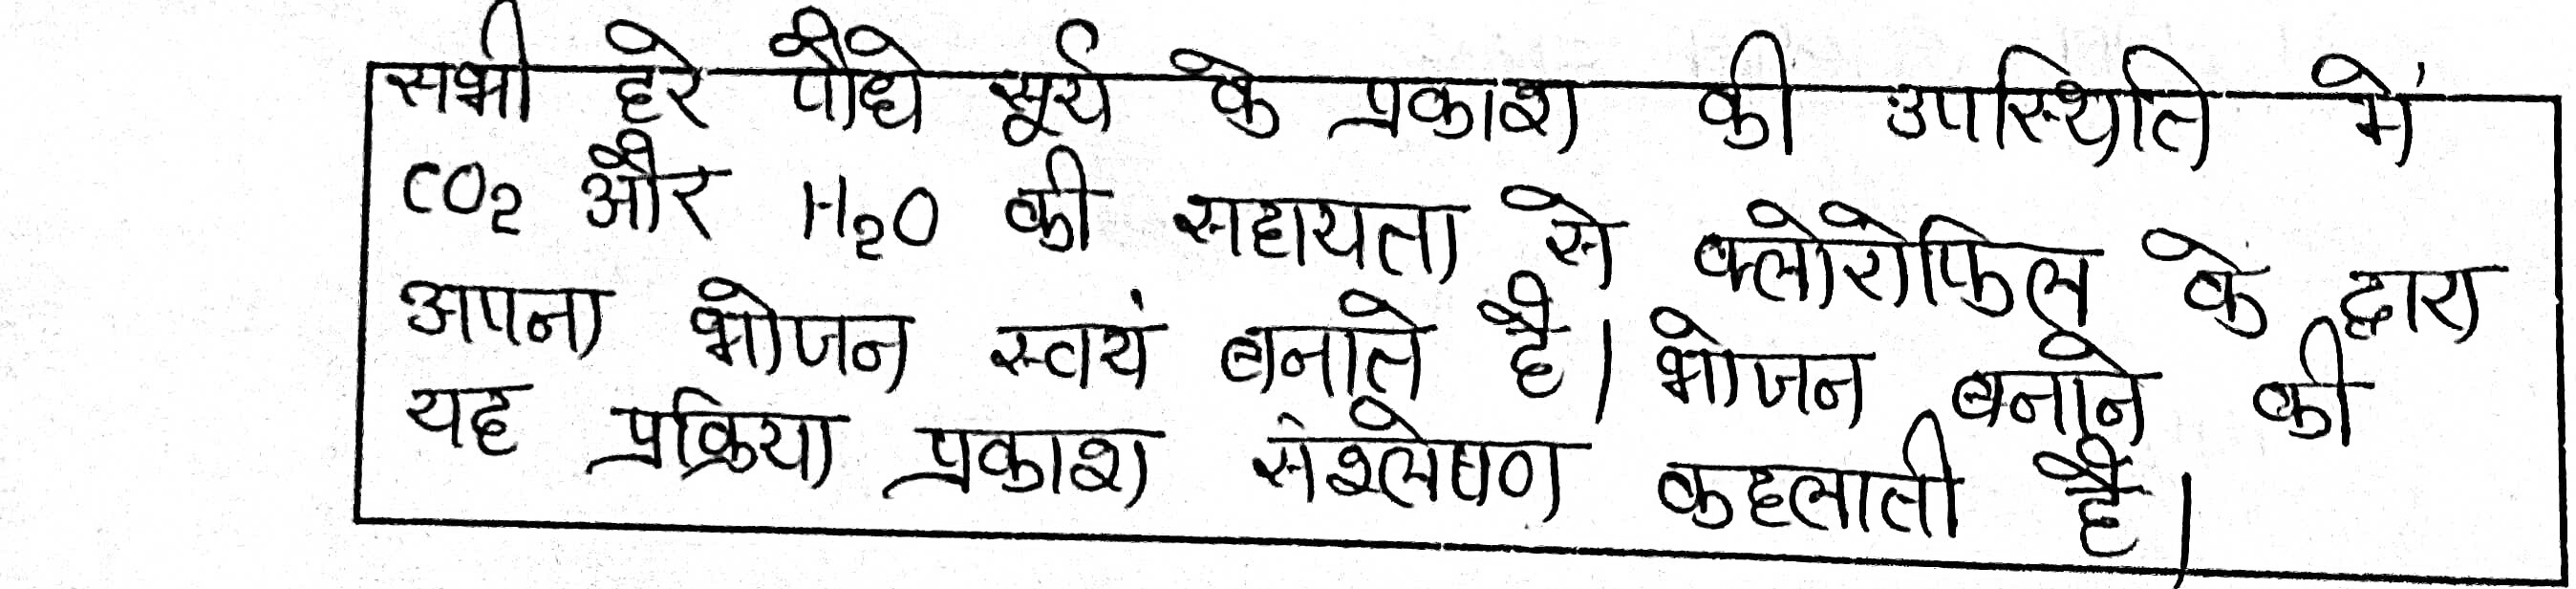 सभी हरे पौधे सूर्य के प्रकाश की उपस्थिति में
CO₂ और H₂O की सहायता से क्लोरोफिल के द्वारा
अपना भोजन स्वयं बनाते है। भोजन बनाने की
यह प्रक्रिया प्रकाश संश्लेषण कहलाती है।